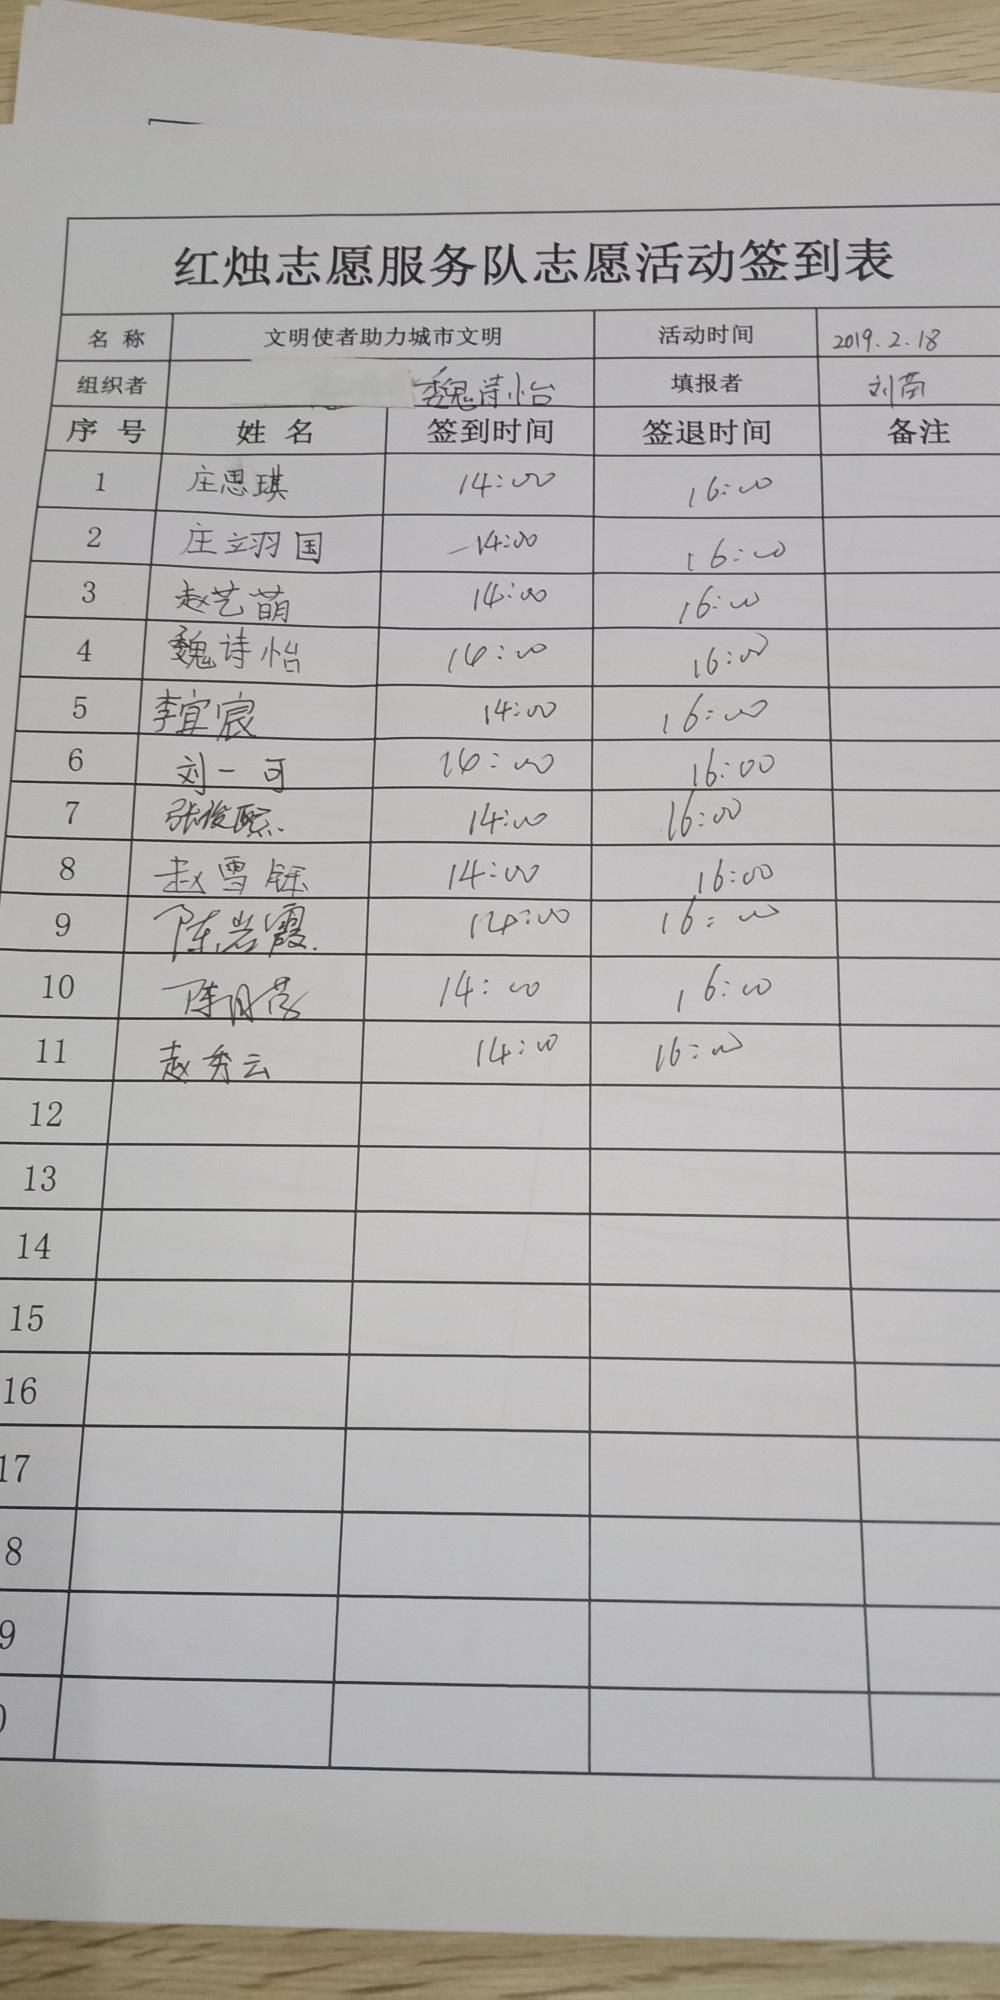 红烛志愿服务队志愿活动签到表
名称 文明使者助力城市文明 活动时间 2019.2.18
组织者 魏诗怡 填报者 刘苗
序号 姓名 签到时间 签退时间 备注
1 庄思琪 14:00 16:00
2 庄立羽国 14:00 16:00
3 赵艺萌 14:00 16:00
4 魏诗怡 14:00 16:00
5 李宜宸 14:00 16:00
6 刘一可 14:00 16:00
7 张俊熙 14:00 16:00
8 赵雪钰 14:00 16:00
9 陈岩霞 14:00 16:00
10 陈月 14:00 16:00
11 赵秀云 14:00 16:00
12
13
14
15
16
17
8
9
0